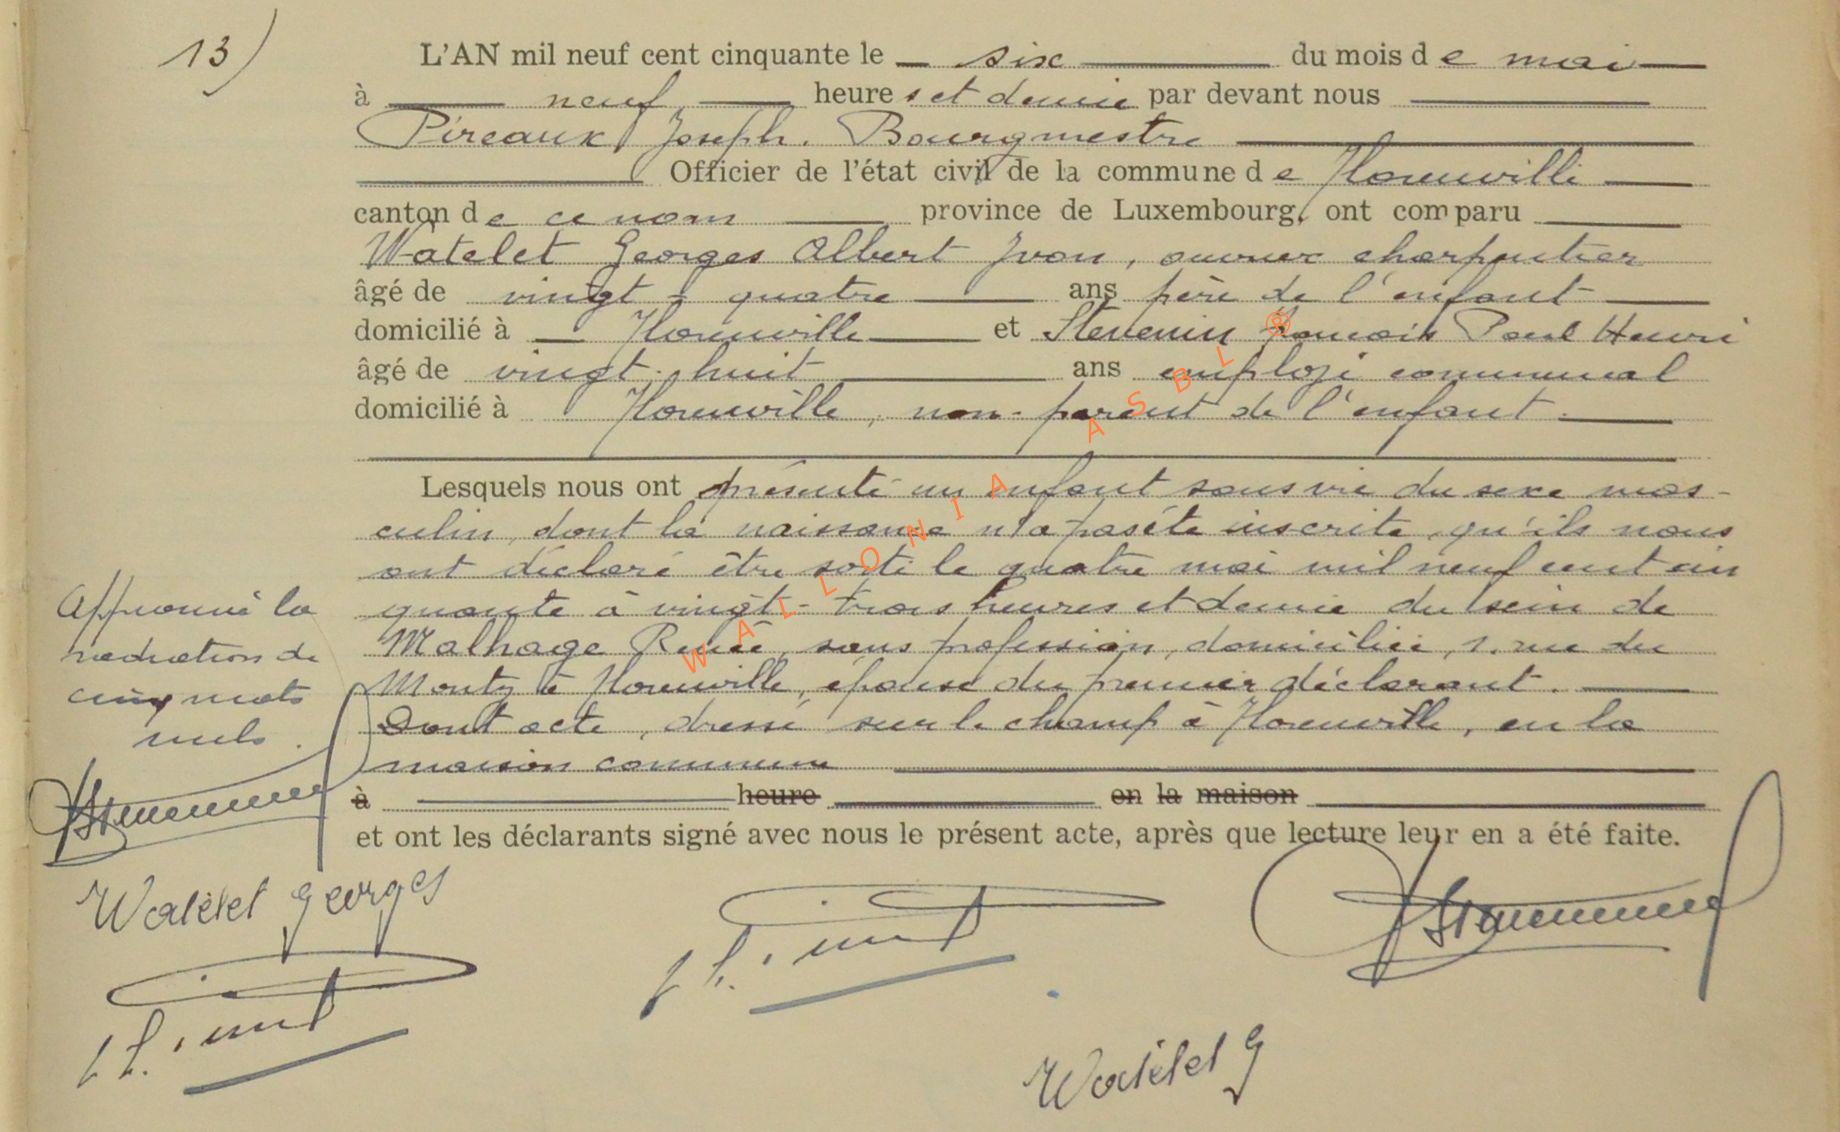 13)
L'AN mil neuf cent cinquante le six du mois de mai
à neuf heures et demie par devant nous
Pireaux Joseph. Bourgmestre
Officier de l'état civil de la commune de Florenville
canton de ce nom province de Luxembourg, ont comparu
Watelet Georges Albert Yvon, ouvrier charpentier
âgé de vingt-quatre ans père de l'enfant
domicilié à Florenville et Stevenin François Paul Henri
âgé de vingt-huit ans employé communal
domicilié à Florenville, non-parent de l'enfant.
Lesquels nous ont présenté un enfant sans vie du sexe mas-
culin, dont la naissance n'a pas été inscrite, qu'ils nous
ont déclaré être sorti le quatre mai mil neuf cent cin
quante à vingt-trois heures et demie du sein de
Malhage Renée, sans profession, domiciliée, 1. rue du
Monty à Florenville, épouse du premier déclarant.
Dont acte, dressé sur le champ à Florenville, en la
maison commune
à heure en la maison
et ont les déclarants signé avec nous le présent acte, après que lecture leur en a été faite.
Approuvé la
radiation de
cinq mots
nuls.
Watelet Georges
Watelet G
WALLONIA ASBL ®